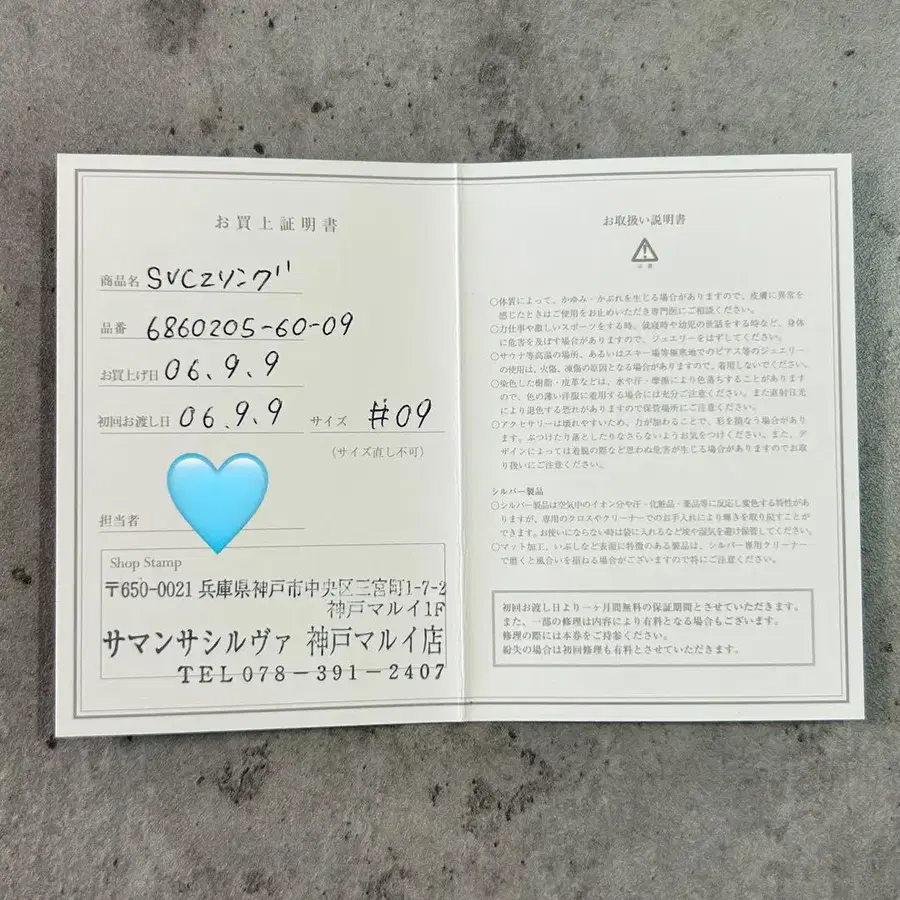 お買上証明書
商品名 SVCZリング
品番 6860205-60-09
お買上げ日 06.9.9
初回お渡し日 06.9.9 サイズ #09
(サイズ直し不可)
担当者
Shop Stamp
〒650-0021 兵庫県神戸市中央区三宮町1-7-2
神戸マルイ1F
サマンサシルヴァ 神戸マルイ店
TEL078-391-2407
お取扱い説明書
注意
○体質によって、かゆみ・かぶれを生じる場合がありますので、皮膚に異常を
感じたときはご使用をお止めいただき専門医にご相談ください。
○力仕事や激しいスポーツをする時、就寝時や幼児の世話をする時など、身体
に危害を及ぼす場合がありますので、ジュエリーをはずしてください。
○サウナ等高温の場所、あるいはスキー場等極寒地でのピアス等のジュエリー
の使用は、火傷、凍傷の原因となる場合がありますので、着用しないでください。
○染色した樹脂・皮革などは、水や汗・摩擦により色落ちすることがあります
ので、色の薄い洋服に着用する場合には充分ご注意ください。また直射日光
により退色する恐れがありますので保管場所にご注意ください。
○アクセサリーは壊れやすいため、力が加わることで、形を損なう場合があり
ます。ぶつけたり落としたりなさらないようお気をつけください。また、デ
ザインによっては着脱の際など思わぬ危害が生じる場合がありますのでお取
り扱いにご注意ください。
シルバー製品
○シルバー製品は空気中のイオン分や汗・化粧品・薬品等に反応し変色する特性があ
りますが、専用のクロスやクリーナーでのお手入れにより輝きを取り戻すことが
できます。お使いにならない時は袋に入れるなど埃や湿気を避け保管してください。
○マット加工、いぶしなど表面に特徴のある製品は、シルバー専用クリーナー
で磨くと風合いを損ねる場合がございますので特にご注意ください。
初回お渡し日より一ヶ月間無料の保証期間とさせていただきます。
また、一部の修理は内容により有料となる場合もございます。
修理の際には本券をご持参ください。
紛失の場合は初回修理も有料とさせていただきます。